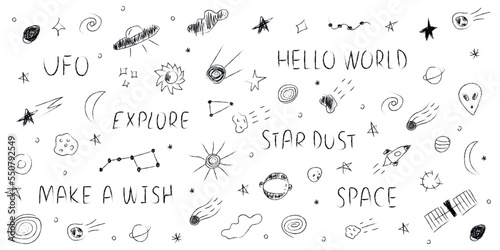 HELLO WORLD
UFO
EXPLORE
STAR DUST
MAKE A WISH
SPACE
Adobe Stock
550792549